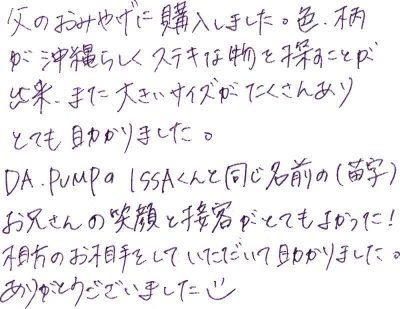 父のおみやげに購入しました。色、柄
が沖縄らしくステキな物を探すことが
出来、また大きいサイズがたくさんあり
とても助かりました。
DA.PUMPの ISSAくんと同じ名前の(苗字)
お兄さんの笑顔と接客がとてもよかった!
相方のお相手をしていただいて助かりました。
ありがとうございました